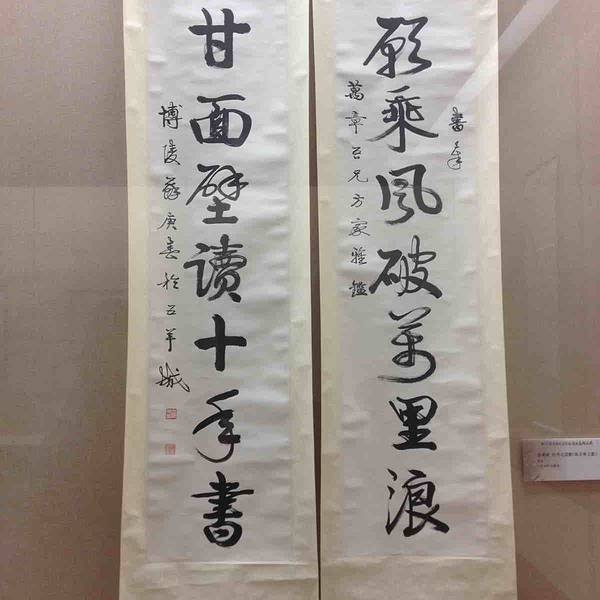 願乘風破萬里浪
書奉
萬章仁兄方家雅鑑
甘面壁讀十年書
博陵蘇庚春於五羊城